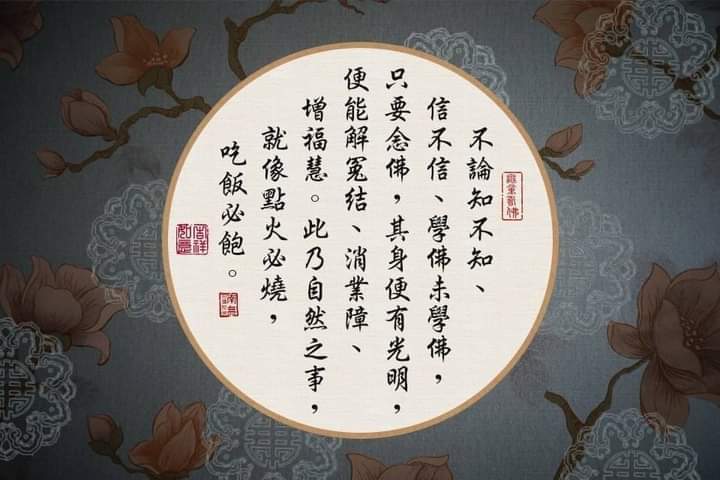 不論知不知、
信不信、學佛未學佛,
只要念佛,其身便有光明,
便能解冤結、消業障、
增福慧。此乃自然之事,
就像點火必燒,
吃飯必飽。
吉祥
如意